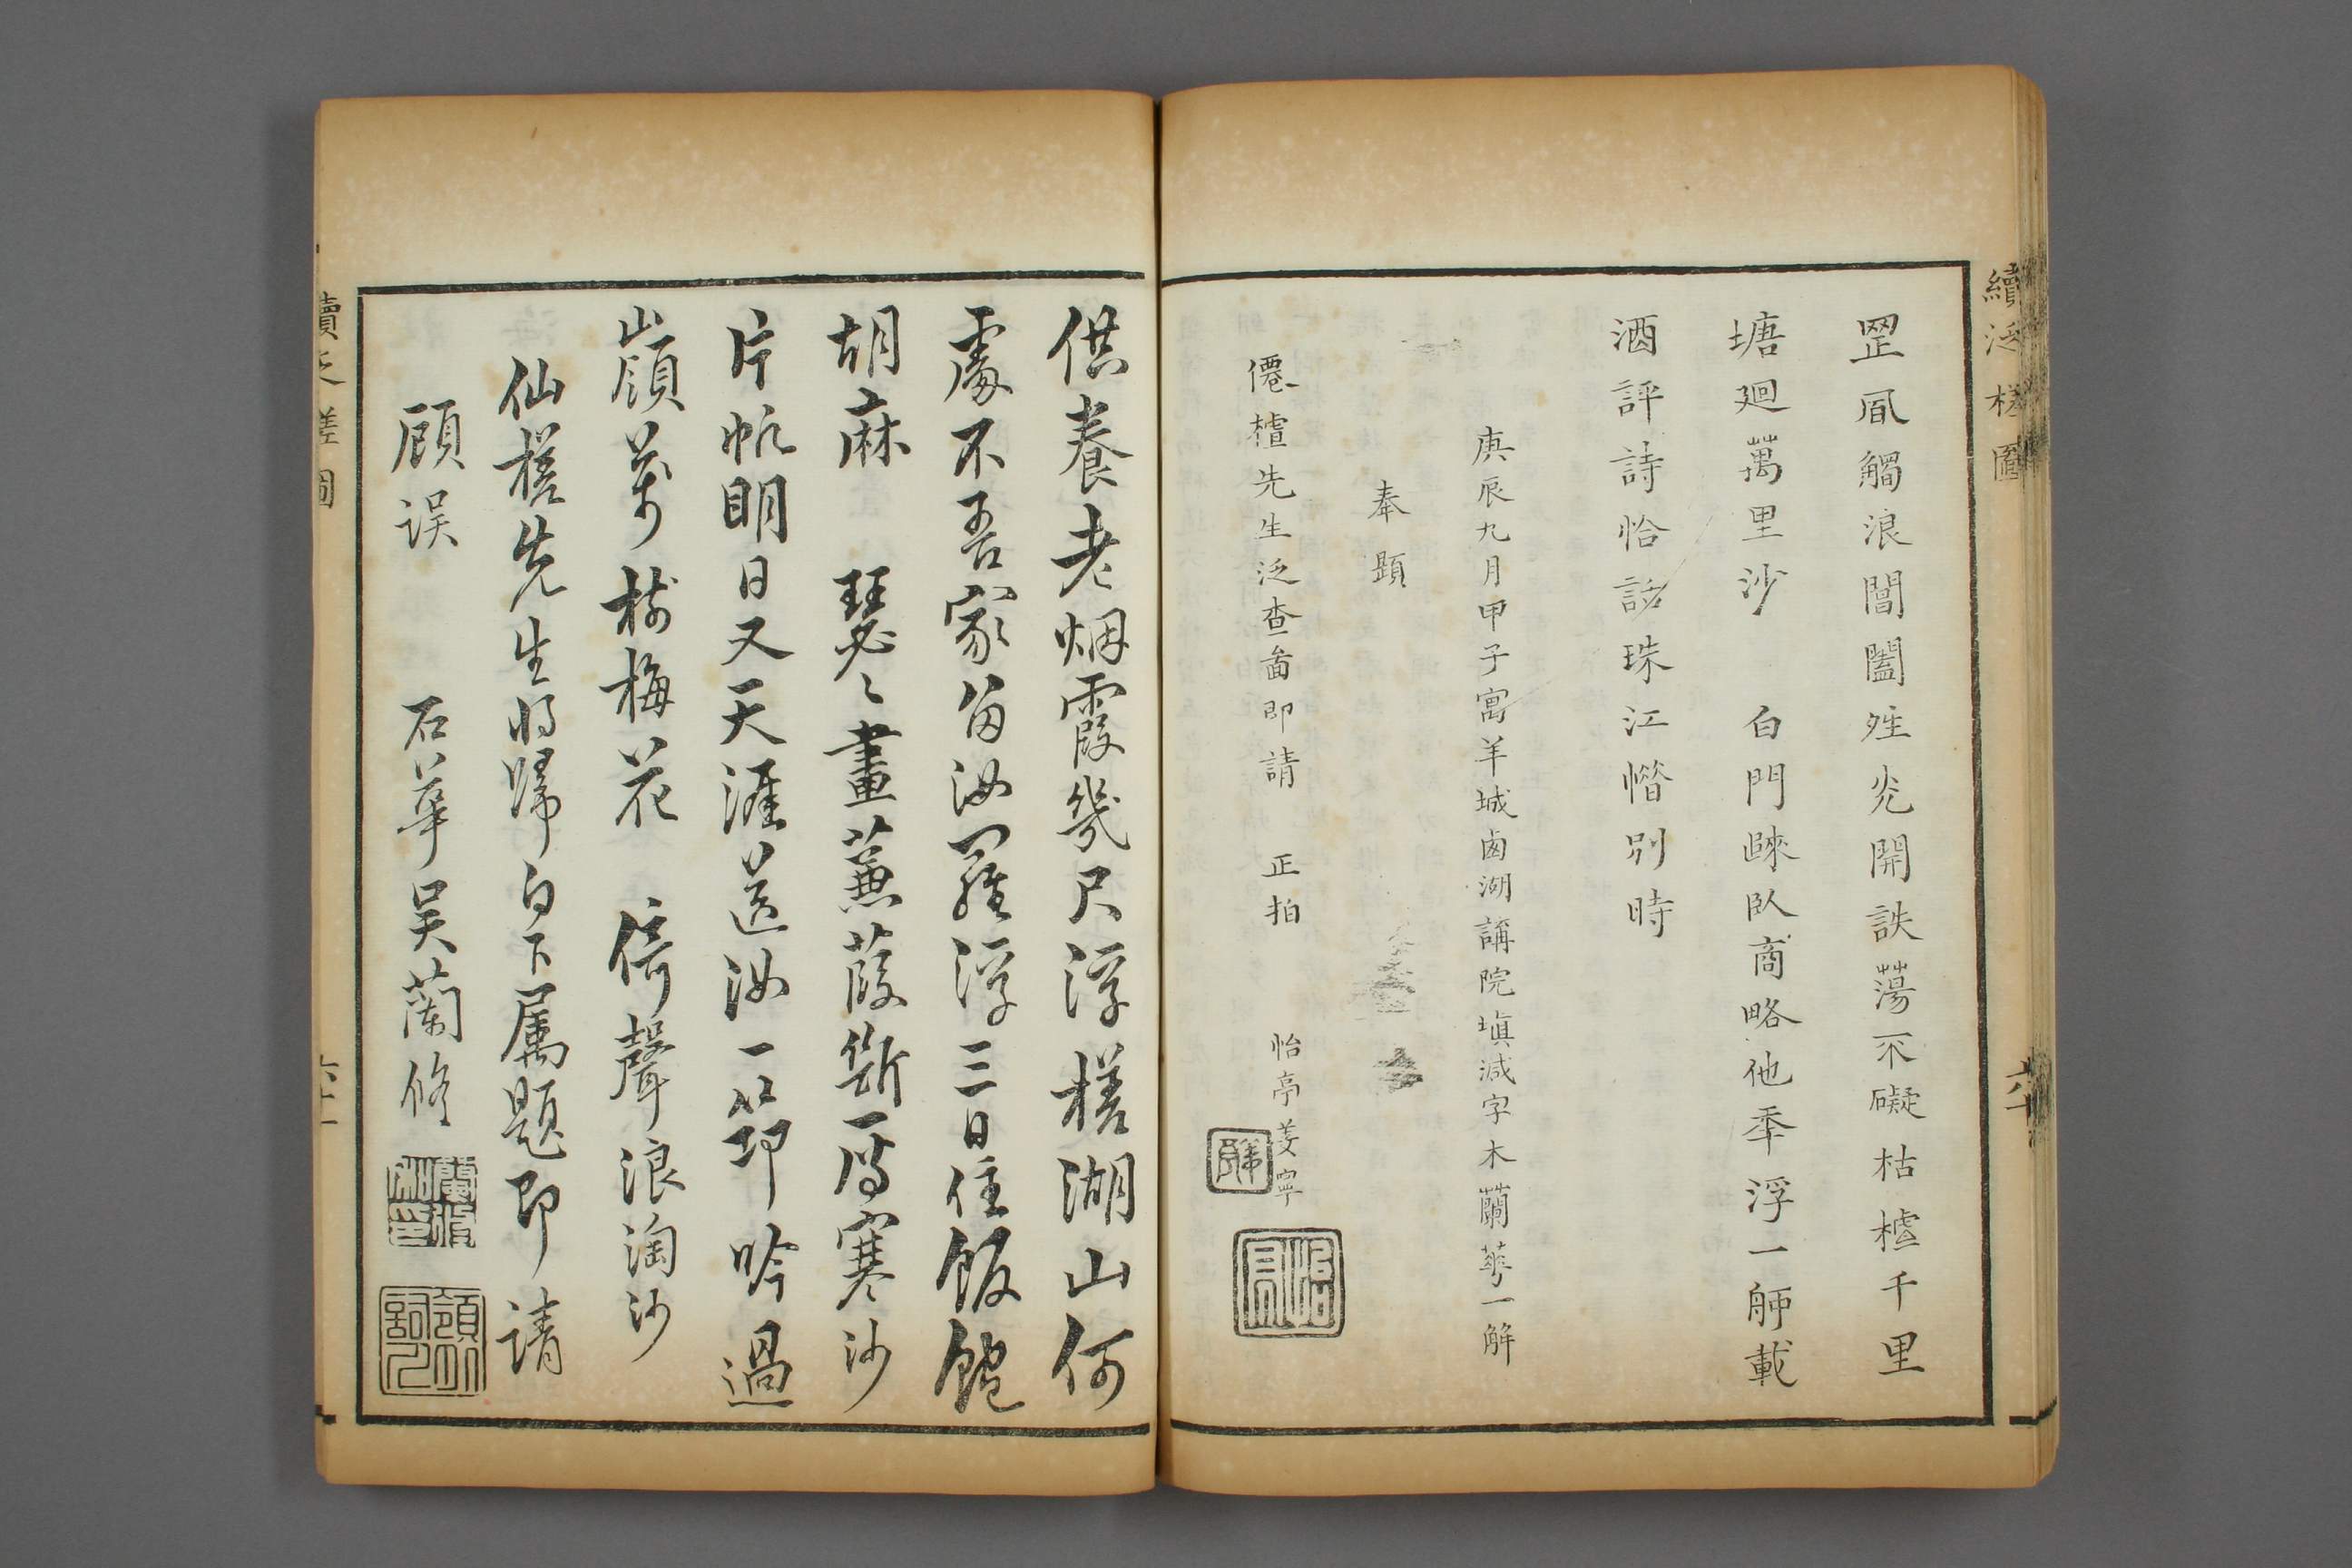 續泛槎圖
六十
罡風觸浪闇闔
開詄蕩不礙枯樝千里
塘迴萬里沙　白門歸臥商略他年浮一舸載
酒評詩恰話珠江惜別時
庚辰九月甲子寓羊城鹵湖講院填減字木蘭華一解
奉題
僊樝先生泛查圖即請　正拍　怡亭姜寧
供養老烟霞幾尺浮槎湖山何
處不吾家留汝羅浮三日住飯飽
胡麻　瑟瑟畫蒹葭斷雁寒沙
片帆明日又天涯送汝一筇吟過
嶺萬樹梅花　倚聲浪淘沙
仙槎先生將歸白下屬題即請
顧誤　石華吳蘭修
續泛槎圖
六十一